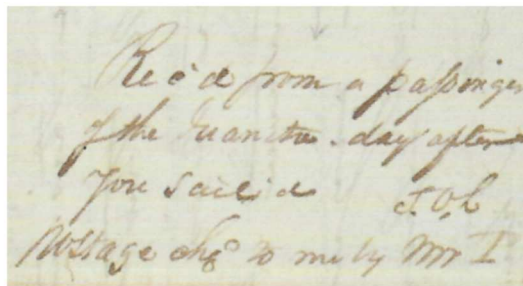 Rec'd from a passinger
of the day after
you sailed J.O.C
Postage chgd to me by Mr I